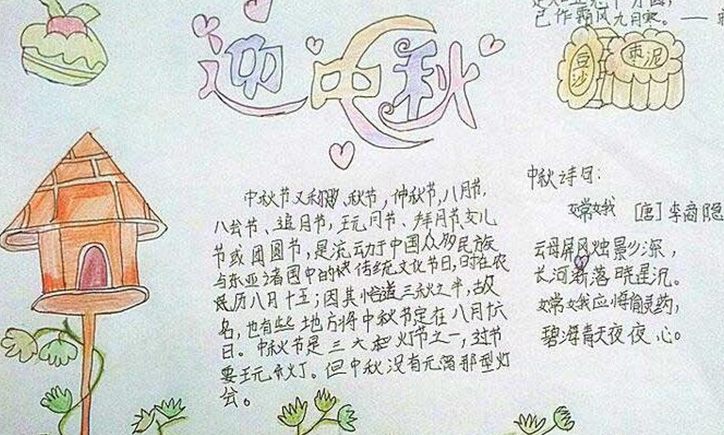 已作霜风九月寒。——
迎中秋
豆沙
枣泥
中秋节又称,秋节,仲秋节,八月节,
八会节、追月节,玩月节、拜月节女儿
节或团圆节,是流动于中国众多民族
与东亚诸国中的传统文化节日,时在农
民历八月十五;因其恰逢三秋之半,故
名,也有些地方将中秋节定在八月十六
日。中秋节是三大灯节之一,过节
要玩灯。但中秋没有元宵那型灯
会。
中秋诗句:
嫦娥 [唐]李商隐
云母屏风烛影深,
长河渐落晓星沉。
嫦娥应悔偷灵药,
碧海青天夜夜心。